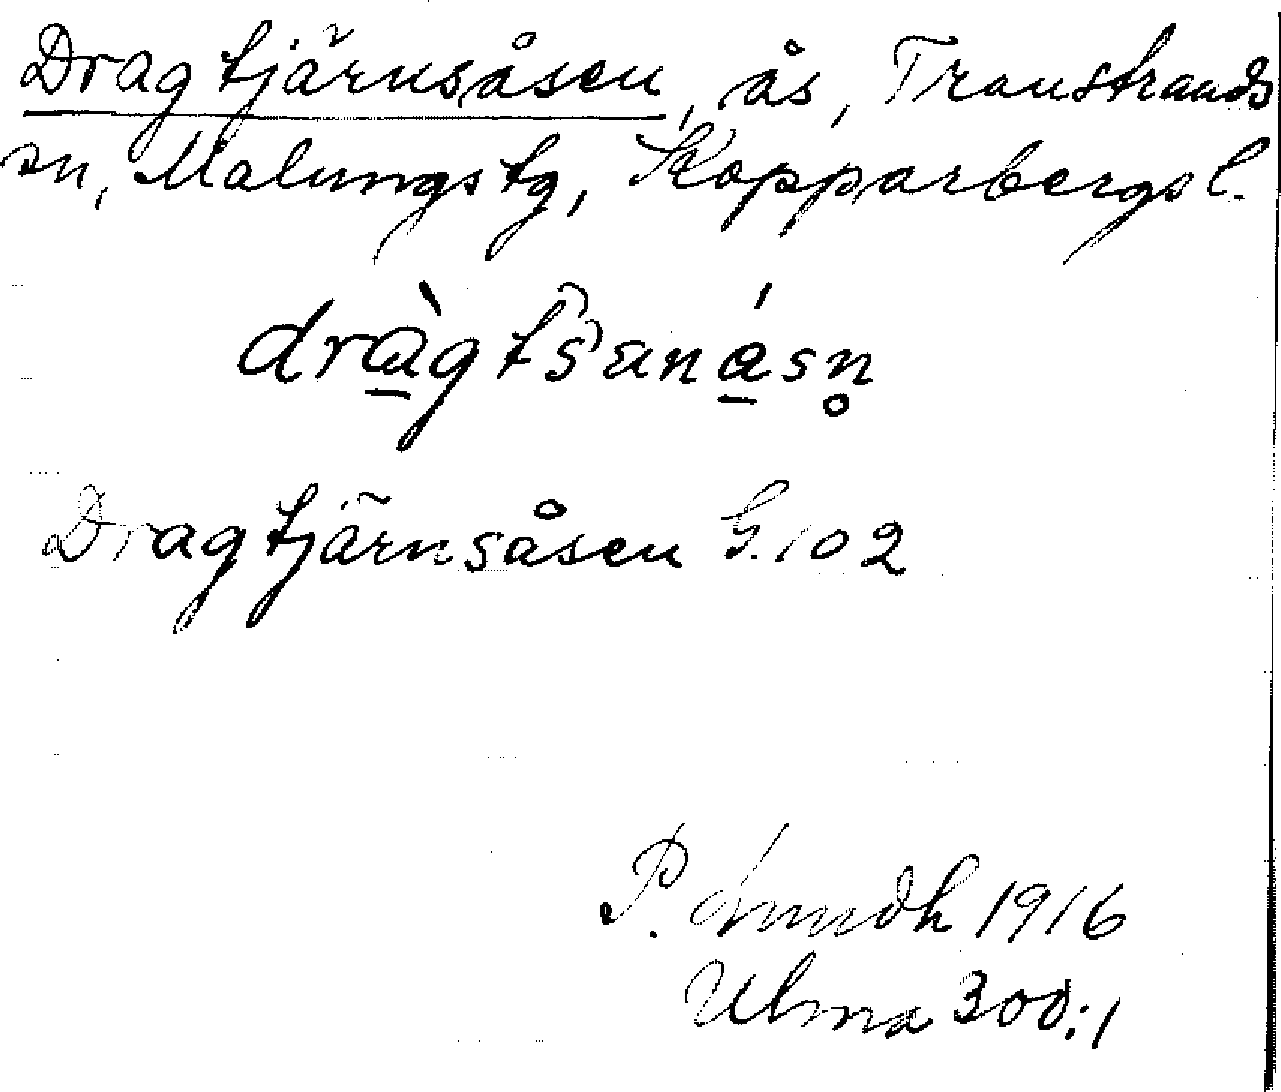 Dragtjärnsåsen, ås, Transtrands
sn, Malungs tg, Kopparbergs l.
Dragtjärnsåsen G. 102
P. 1916
Ulma 300:1